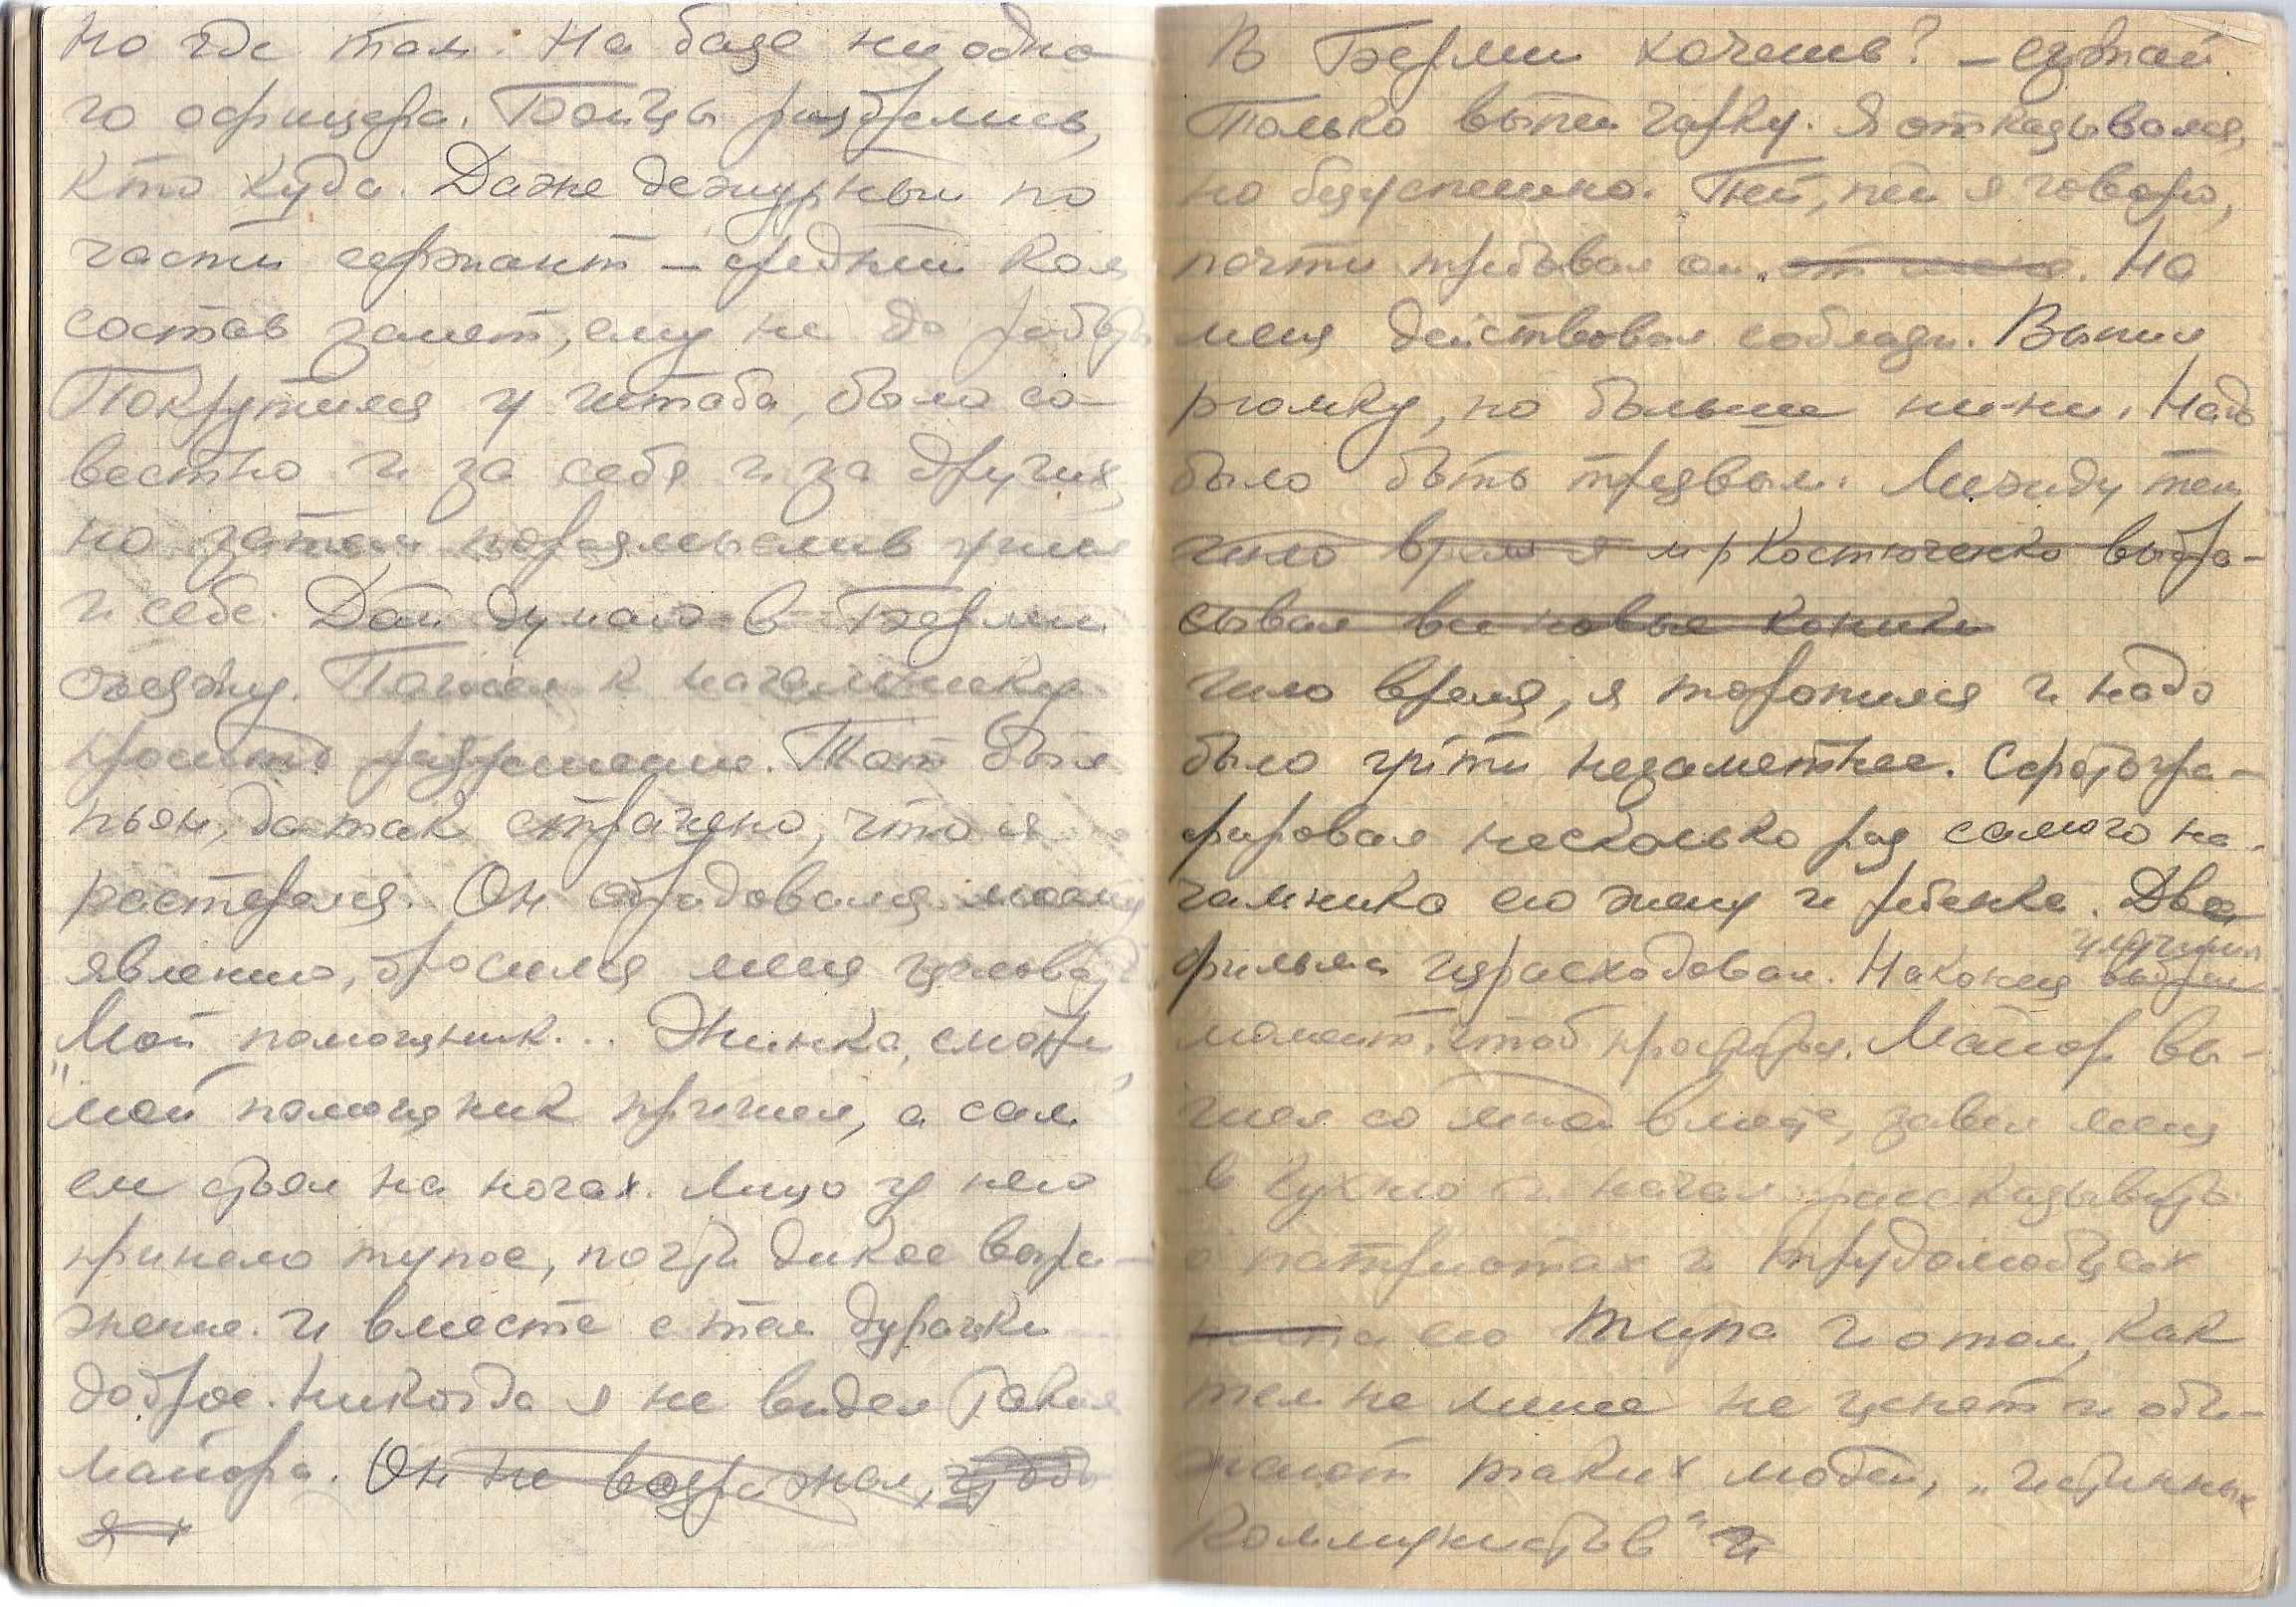 Но где там. На базе ни одно-
го офицера. Бойцы разбрелись,
кто куда. Даже дежурный по
части сержант – средний ком
состав занят, ему не до работы
Покрутился у штаба, было со-
вестно и за себя и за других,
но затем поразмыслив ушел
к себе. Дай думаю в Берлин
съезжу. Пошел к начальнику
просить разрешение. Тот был
пьян, да так страшно, что я
растерялся. Он обрадовался моему
явлению, бросился меня целовать
"Мой помощник... Жинка, смотри
мой помощник пришел", а сам
ели стоял на ногах. Лицо у него
приняло тупое, почти дикое выра-
жение. И вместе с тем дурацки
доброе. Никогда я не видел таким
майора. Он не возражал, чтобы
я
В Берлин хочешь? – езжай.
Только выпей чарку. Я отказывался,
но безуспешно. "Пей, пей я говорю,
почти требовал он. от меня. На
меня действовал соблазн. Выпил
рюмку, но больше ни-ни. Надо
было быть трезвым. Между тем
шло время я м-р Костюченко выбра-
сывал все новые коники
шло время, я торопился и надо
было уйти незаметнее. Сфотогра-
фировал несколько раз самого на-
чальника его жену и ребенка. Две
фильма израсходовал. Наконец выбрал
улучшил
момент, чтоб проститься. Майор вы-
шел со мной вместе, завел меня
в кухню и начал рассказывать
о патриотах и трудолюбцах
его типа и о том, как
тем не менее не ценят и оби-
жают таких людей, "истинных
коммунистов" и